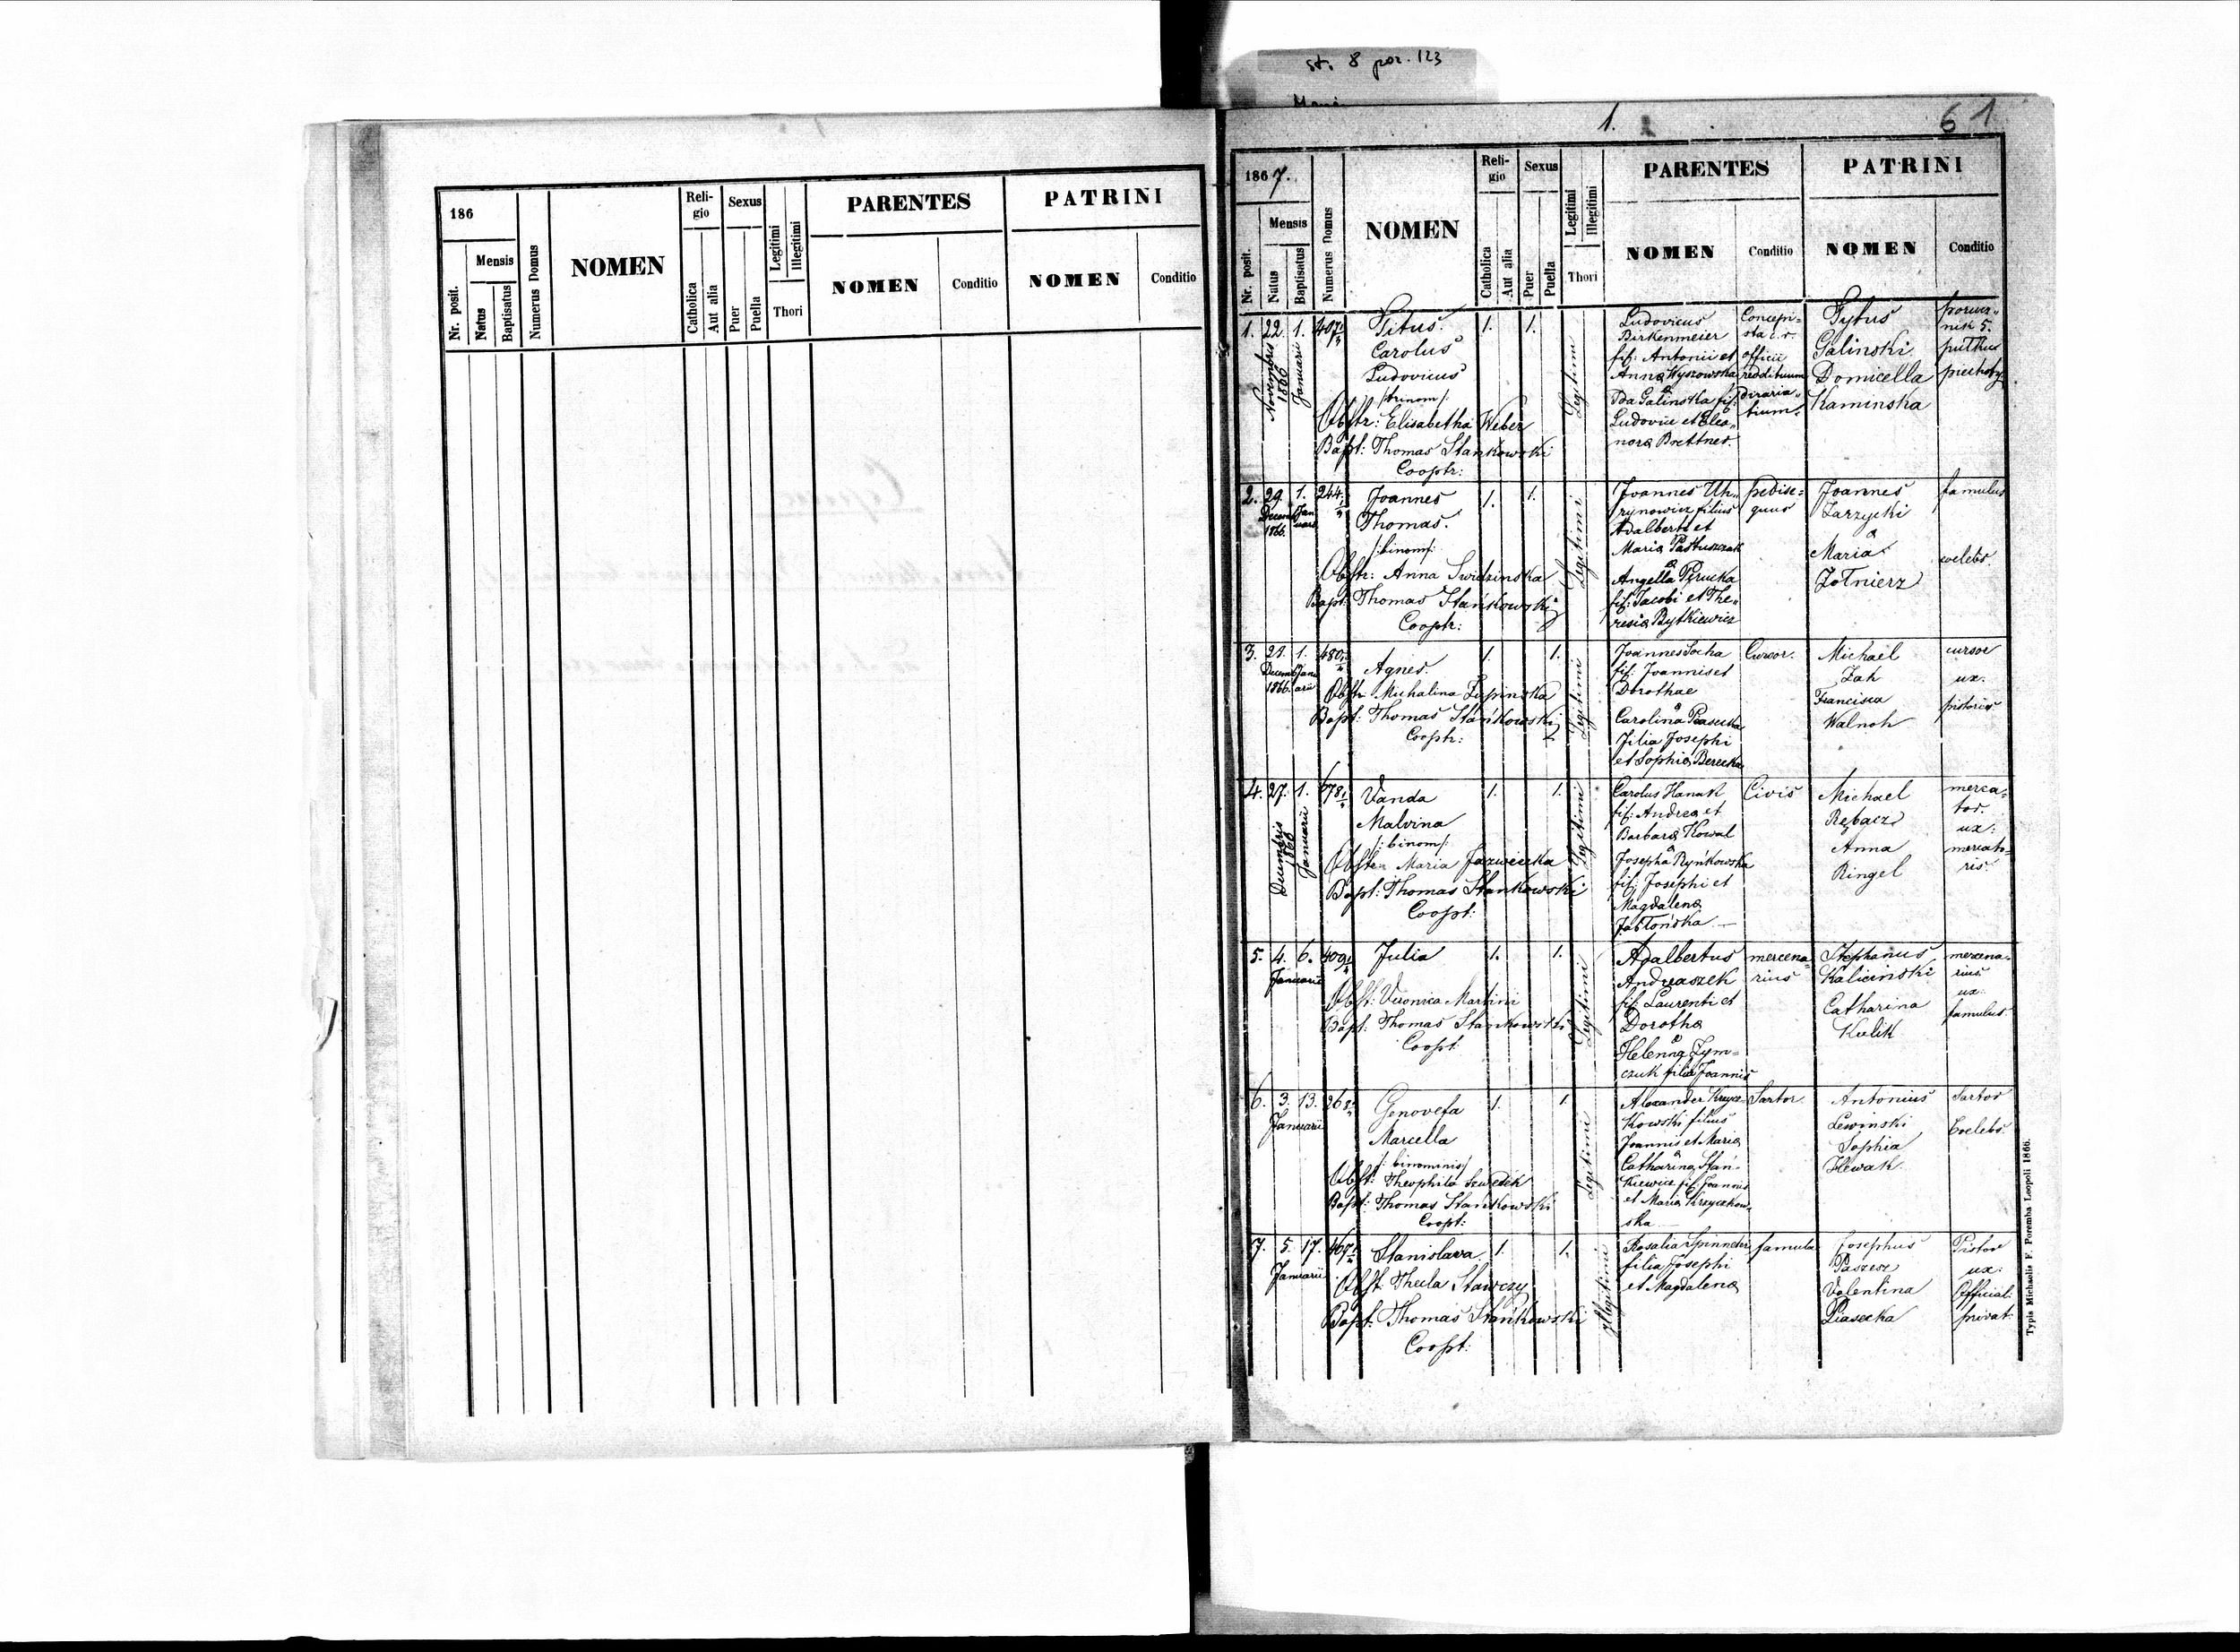 str 8 poz. 123
1.
61
186
Mensis
Nr. posit.
Natus
Baptisatus
Numerus Domus
NOMEN
Reli-
gio
Catholica
Aut alia
Sexus
Puer
Puella
Legitimi
Illegitimi
Thori
PARENTES
NOMEN
Conditio
PATRINI
NOMEN
Conditio
1867.
Mensis
Nr. posit.
Natus
Baptisatus
Numerus Domus
NOMEN
Reli-
gio
Catholica
Aut alia
Sexus
Puer
Puella
Legitimi
Illegitimi
Thori
PARENTES
NOMEN
Conditio
PATRINI
NOMEN
Conditio
1. 22. 1.
Novembris
1866
Januarii
Titus
Carolus
Ludovicus
Obstr: Elisabetha Weber
Bapt: Thomas Stankowski
Cooptr:
1. 1.
Legitimi
Ludovicus
Birkenmeier
fil: Antonii et
Anna Wyszowska
&
Ida Galinska fil:
Ludovici et Eleo-
nora Brettner.
Concepi-
sta c. r.
officii
Tytus
Galinski
Domicella
Kaminska
2. 29. 1. 244
1866.
Joannes
Thomas.
/:binom:/
Obstr: Anna Swidzinska
Bapt: Thomas Stańkowski
Cooptr:
1. 1.
Legitimi
Joannes Uh-
rynowicz filius
Adalberti et
Maria Pastuszczak
&
Angella Perucka
fil: Jacobi et The-
resia Bytkiewicz
pedise-
quus
Joannes
Zarzycki
&
Maria
Żołnierz
famulus
coelebs.
3. 21. 1. 480
1866.
Agnes.
Obstr Michalina Lupinska
Bapt: Thomas Stańkowski
Cooptr:
1. 1.
Legitimi
Joannes Socha
fil: Joannis et
Dorothae
&
Carolina Piasecka
Filia Josephi
et Sophia Berecka
Cursor.
Michael
Zah
Francisca
Walnoh
cursor
ux.
pistoris
4. 27. 1. 678
Decembris
1866
Januarii
Vanda
Malvina
/:binom:/
Obstr Maria Jazwiecka
Bapt: Thomas Stankowski
Coopt:
1. 1.
Legitimi
Carolus Hanak
fil: Andrea et
Barbara Kowal
&
Josepha Rynkowska
fil: Josephi et
Magdalena
Jabłońska
Civis
Michael
Rębacz
Anna
Ringel
merca-
tor.
ux:
mercato-
ris.
5. 4. 6. 409
Januarii
Julia
Obst: Veronica Martini
Bapt: Thomas Stankowski
Coopt:
1. 1.
Legitimi
Adalbertus
Andreaszek
fil: Laurenti et
Dorotha
&
Helenna Zym-
czuk filia Joannis
mercena-
rius
Stephanus
Kalicinski
Catharina
Kulik
mercena-
rius
ux.
famulus.
6. 3. 13.
Januarii
Genovefa
Marcella
/:binominis/
Obst: Theophila Szwedek
Bapt: Thomas Stańkowski
Coopt:
1. 1.
Legitimi
Alexander Krzycz-
kowski filius
Joannis et Maria
&
Catharina Stan-
kiewicz fil: Joannis
et Maria Krzyczkow-
ska
Sartor.
Antonius
Lewinski
Sophia
Hewak
Sartor
Coelebs.
7. 5. 17.
Januarii
Stanislava
Obst Thecla Stawczy
Bapt: Thomas Stańkowski
Coopt:
1. 1.
Illegitimi
Rosalia Spinneter
filia Josephi
et Magdalena
famula
Josephus
Valentina
Piasecka
Pistor
ux:
Official:
privat:
Typis Michaelis F. Poremba Leopoli 1866.